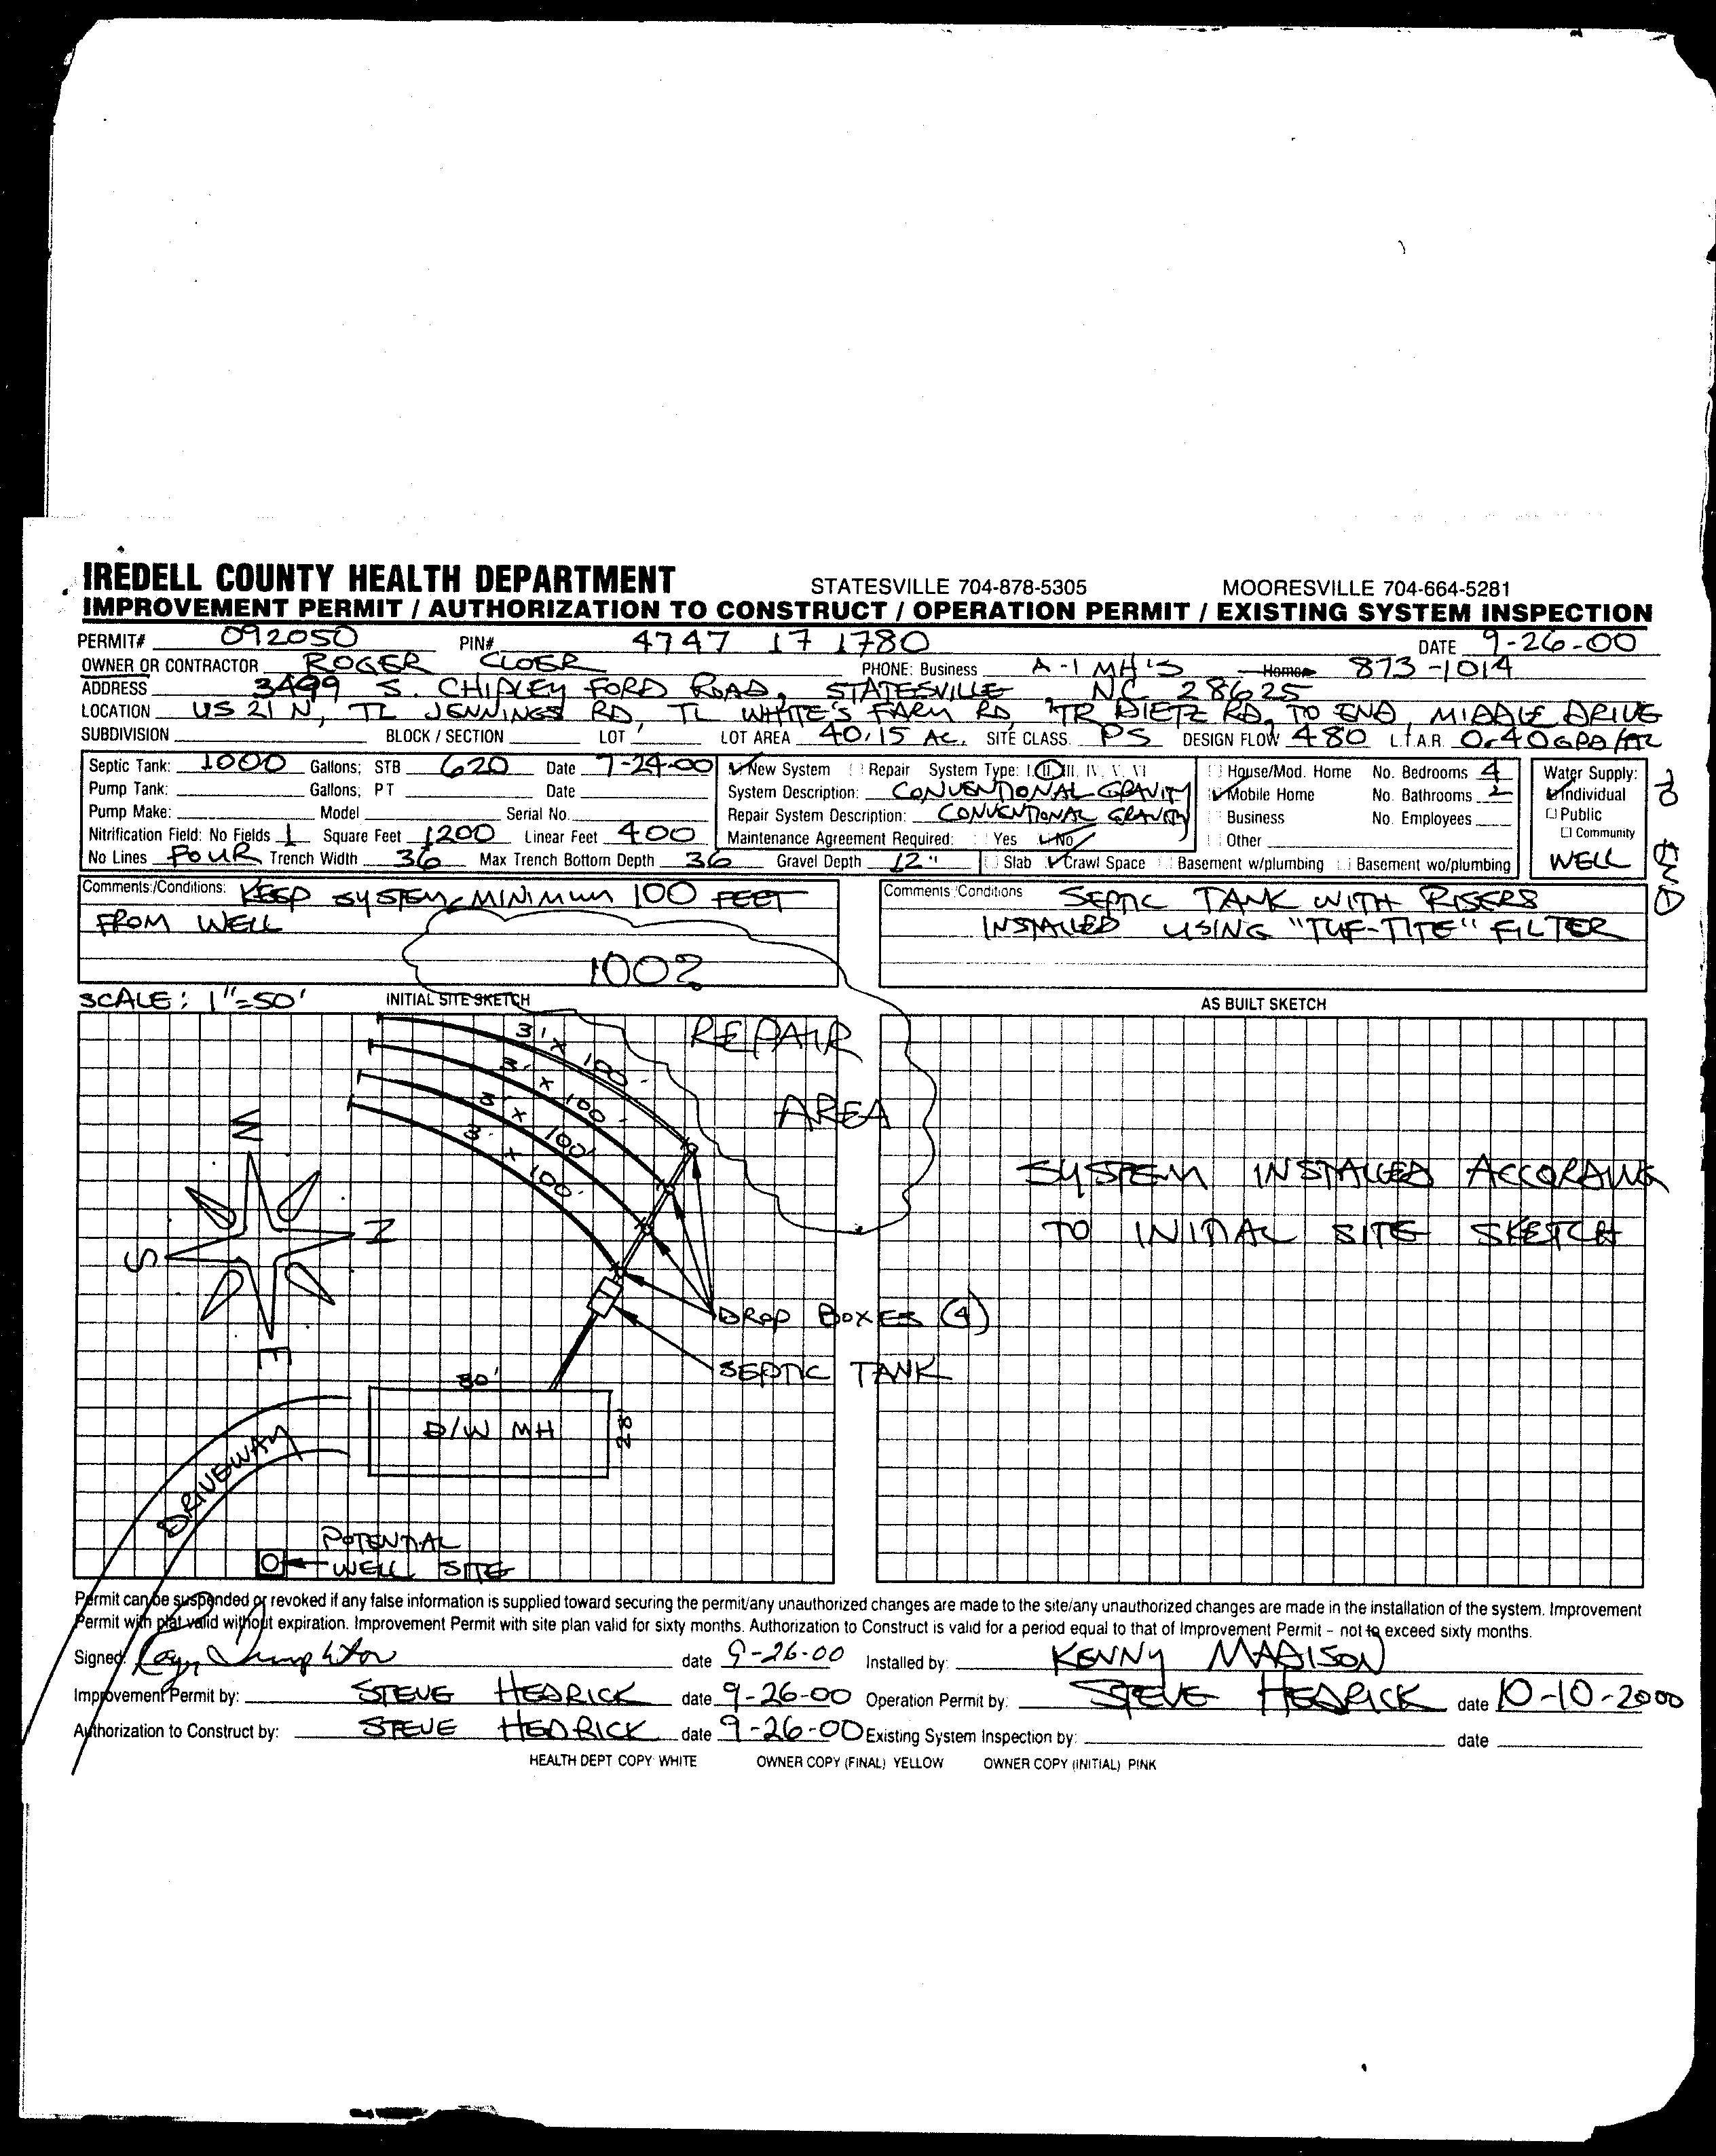 IREDELL COUNTY HEALTH DEPARTMENT STATESVILLE 704-878-5305 MOORESVILLE 704-664-5281
IMPROVEMENT PERMIT / AUTHORIZATION TO CONSTRUCT / OPERATION PERMIT / EXISTING SYSTEM INSPECTION
PERMIT# 092050 PIN# 4747 17 1780 DATE 9-26-00
OWNER OR CONTRACTOR ROGER CLOER PHONE: Business A-1 MH'S Home 873-1014
ADDRESS 3499 S. CHIPLEY FORD ROAD, STATESVILLE, NC 28625
LOCATION US 21 N, TL JENNINGS RD, TL WHITE'S FARM RD, TR DIETZ RD, TO END, MIDDLE DRIVE
SUBDIVISION BLOCK / SECTION LOT LOT AREA 40.15 AC. SITE CLASS. PS DESIGN FLOW 480 L.T.A.R. 0.40 GPD/FT2
Septic Tank: 1000 Gallons; STB 620 Date 7-24-00 New System Repair System Type: I, II, III, IV, V, VI House/Mod. Home No. Bedrooms 4 Water Supply:
Pump Tank: Gallons; PT Date System Description: CONVENTIONAL GRAVITY Mobile Home No. Bathrooms 2 Individual
Pump Make: Model Serial No. Repair System Description: CONVENTIONAL GRAVITY Business No. Employees Public
Nitrification Field: No Fields 1 Square Feet 1200 Linear Feet 400 Maintenance Agreement Required: Yes No Other Community
No Lines FOUR Trench Width 36 Max Trench Bottom Depth 36 Gravel Depth 12" Slab Crawl Space Basement w/plumbing Basement wo/plumbing WELL
Comments:/Conditions: KEEP SYSTEM MINIMUM 100 FEET
FROM WELL
Comments/Conditions SEPTIC TANK WITH RISERS
INSTALLED USING "TUF-TITE" FILTER
100%
SCALE: 1"=50' INITIAL SITE SKETCH AS BUILT SKETCH
REPAIR
AREA
3' x 100'
3' x 100'
3' x 100'
3' x 100'
W
N
S
E
SYSTEM INSTALLED ACCORDING
TO INITIAL SITE SKETCH
DROP BOXES (4)
SEPTIC TANK
80'
D/W MH
28'
DRIVEWAY
POTENTIAL
WELL SITE
Permit can be suspended or revoked if any false information is supplied toward securing the permit/any unauthorized changes are made to the site/any unauthorized changes are made in the installation of the system. Improvement
Permit with plat valid without expiration. Improvement Permit with site plan valid for sixty months. Authorization to Construct is valid for a period equal to that of Improvement Permit - not to exceed sixty months.
Signed: date 9-26-00 Installed by: KENNY MADISON
Improvement Permit by: STEVE HEDRICK date 9-26-00 Operation Permit by: STEVE HEDRICK date 10-10-2000
Authorization to Construct by: STEVE HEDRICK date 9-26-00 Existing System Inspection by: date
HEALTH DEPT COPY WHITE OWNER COPY (FINAL) YELLOW OWNER COPY (INITIAL) PINK